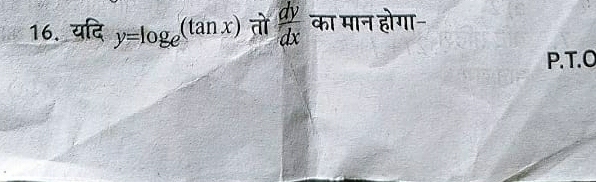 16. यदि y=logₑ(tan x) तो dy/dx का मान होगा-
P.T.O